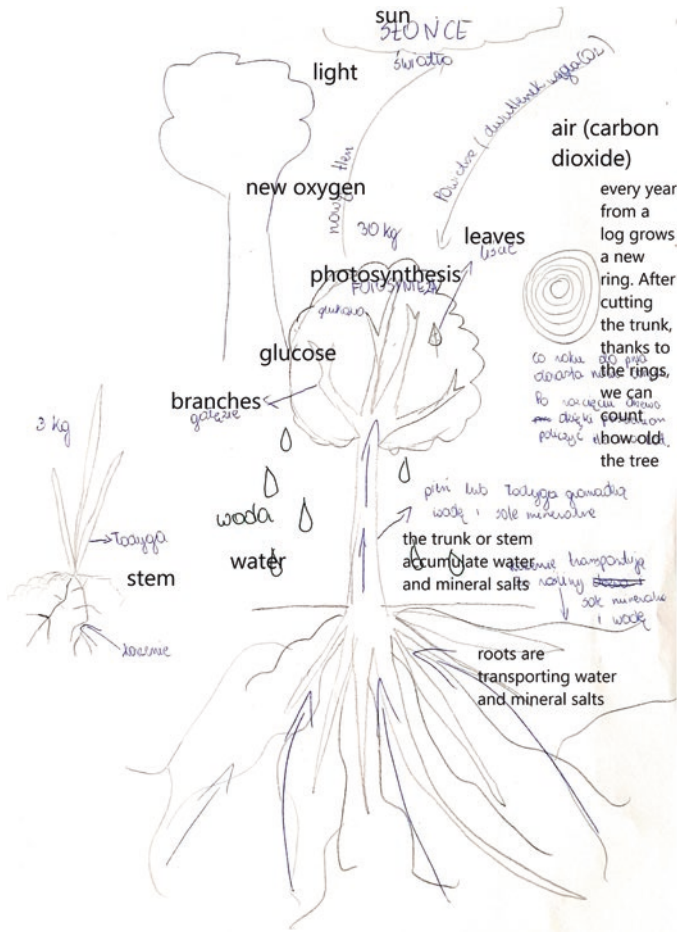 sun
SŁOŃCE
światło
light
Powietrze (dwutlenek węgla CO2)
air (carbon
dioxide)
nowy tlen
new oxygen
30 kg
leaves
liście
photosynthesis
FOTOSYNTEZA
glukoza
glucose
branches
gałęzie
every year
from a
log grows
a new
ring. After
cutting
the trunk,
thanks to
the rings,
we can
count
how old
the tree
co roku do pnia
dorasta
Po
dzięki
policzyć
3 kg
łodyga
stem
korzenie
woda
water
pień lub łodyga gromadzą
wodę i sole mineralne
the trunk or stem
accumulate water
and mineral salts
korzenie transportują
do rośliny
sole mineralne
i wodę
roots are
transporting water
and mineral salts